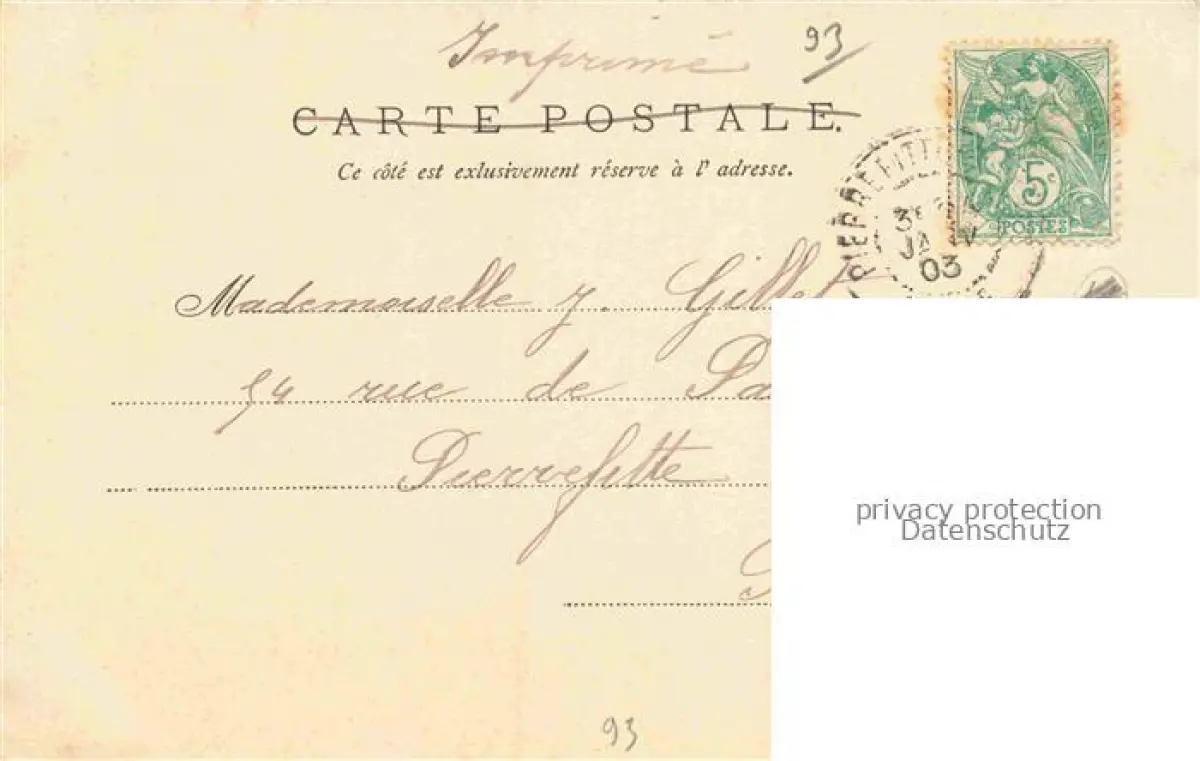 Imprimé 93
CARTE POSTALE.
Ce côté est exlusivement réserve à l' adresse.
5c
POSTES
3
JANV
03
Mademoiselle J. Gillet
54 rue de
Pierrefitte
privacy protection
Datenschutz
93